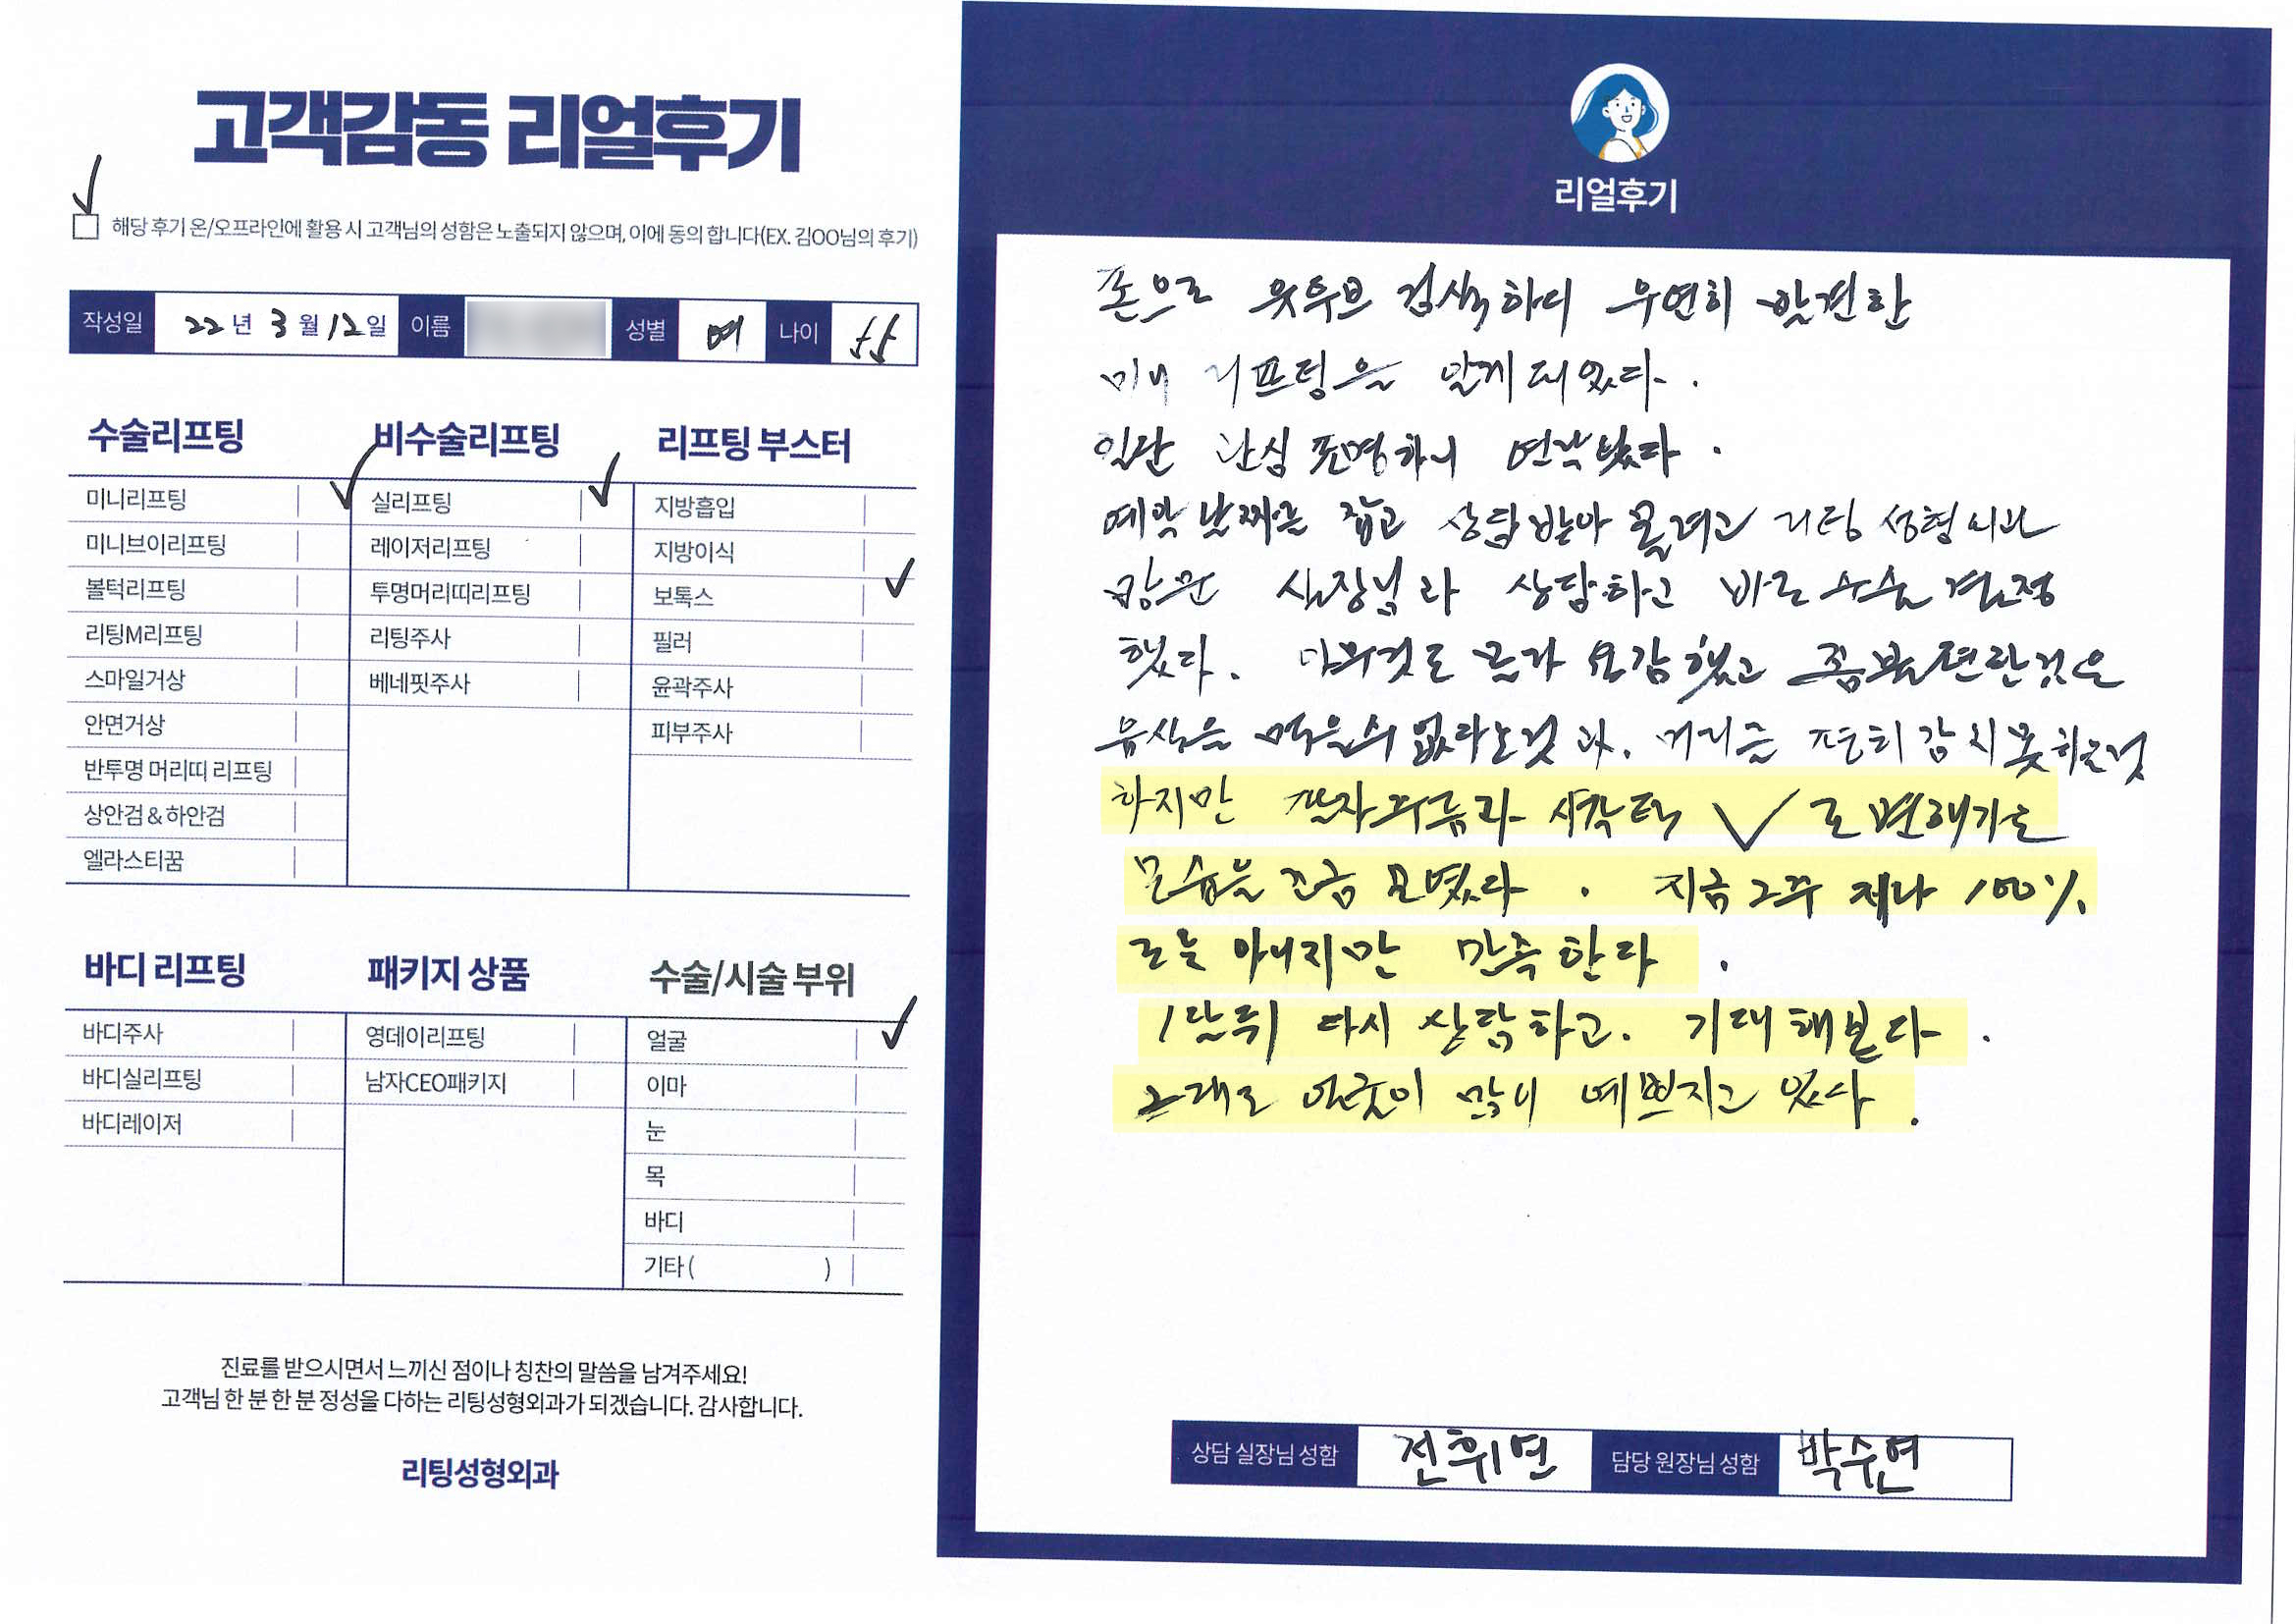 고객감동 리얼후기
해당 후기 온/오프라인에 활용 시 고객님의 성함은 노출되지 않으며, 이에 동의 합니다(EX. 김OO님의 후기)
작성일 22년 3월 12일 이름 성별 여 나이
수술리프팅
미니리프팅
미니브이리프팅
볼턱리프팅
리팅M리프팅
스마일거상
안면거상
반투명 머리띠 리프팅
상안검 & 하안검
엘라스티꿈
비수술리프팅
실리프팅
레이저리프팅
투명머리띠리프팅
리팅주사
베네핏주사
리프팅 부스터
지방흡입
지방이식
보톡스
필러
윤곽주사
피부주사
바디 리프팅
바디주사
바디실리프팅
바디레이저
패키지 상품
영데이리프팅
남자CEO패키지
수술/시술 부위
얼굴
이마
눈
목
바디
기타 ( )
진료를 받으시면서 느끼신 점이나 칭찬의 말씀을 남겨주세요!
고객님 한 분 한 분 정성을 다하는 리팅성형외과가 되겠습니다. 감사합니다.
리팅성형외과
리얼후기
폰으로 유투브 검색하디 우연히 발견한
미니 리프팅을 알게 되었다.
일단 관심 표명하니 연락 왔다.
예약 날짜를 잡고 상담 받아 볼려고 리팅 성형외과
방문 실장님과 상담하고 바로 수술 결정
했다. 아무것도 좀 불편한것은
음식을 먹을수 없다는것과. 머리를 감지 못하는것
하지만 턱 V로 변해가는
모습을 조금 보였다. 지금 2주 째나 100%
로는 아니지만 만족한다.
1달뒤 다시 상담하고. 기대 해본다.
그래도 얼굴이 많이 예쁘지고 있다.
상담 실장님 성함 전휘면 담당 원장님 성함 박수연